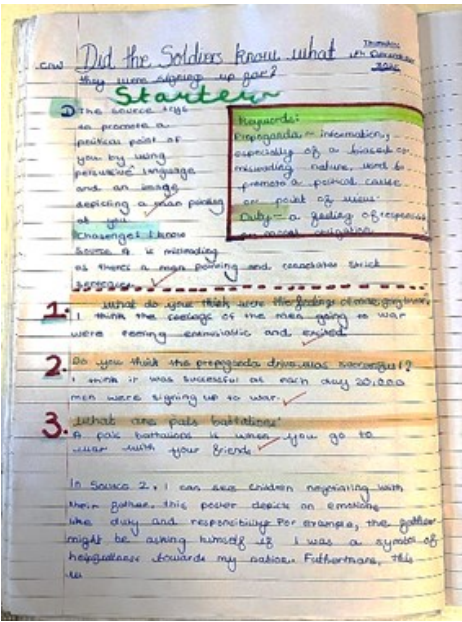 C/W Did the Soldiers know what
they were signing up for?
Thursday
Starter
1) The source trys
to promote a
political point of
you by using
persuasive language
and an image
depicting a man pointing
at you.
Challenge: I know
Source A is misleading
as there's a man pointing and
Keywords:
Propaganda - information,
especially of a biased or
misleading nature, used to
promote a political cause
or point of view.
Duty - a feeling of
or moral obligation
1. What do you think were the feelings of
I think the feelings of the men going to war
were feeling enthusiastic and excited.
2. Do you think the propaganda drive was successful?
I think it was successful as each day 20,000
men were signing up to war.
3. What are pals battalions?
A pals battalions is when you go to
war with your friends
In Source 2, I can see children negotiating with
their father. this poster depicts on emotions
like duty and responsibility. For example, the father
might be asking himself if I was a symbol of
helpfullness towards my nation. Futhermore, this
is